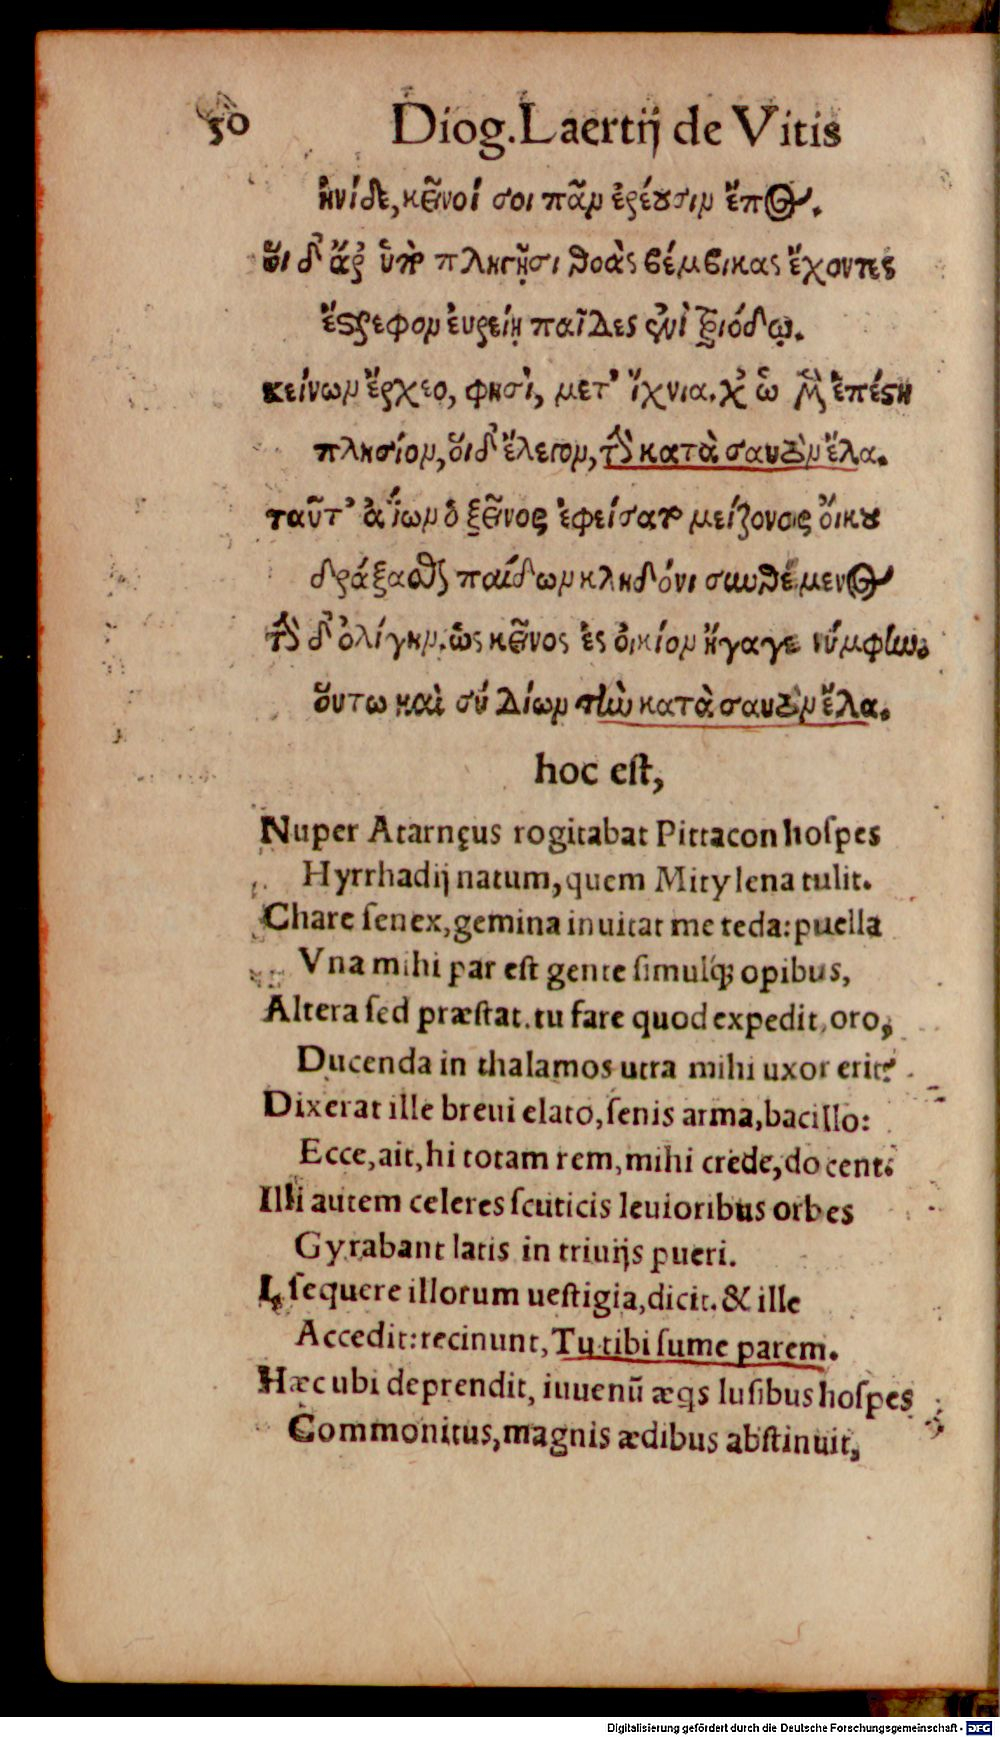 50 Diog. Laertij de Vitis
ἠνίδε, κεῖνοί σοι πᾶν ἐρέουσιν ἔπος.
οἱ δ' ἄρ ὑπὸ πληγῇσι θοὰς βέμβικας ἔχοντες
ἔστρεφον εὐρείῃ παῖδες ἐνὶ τριόδῳ.
κείνων ἔρχεο, φησὶ, μετ' ἴχνια. χ' ὠ μὲν ἐπέστη
πλησίον, οἱ δ' ἔλεγον, τὴν κατὰ σαυτὸν ἔλα.
ταῦτ' ἀΐων ὁ ξεῖνος ἐφείσατο μείζονος οἴκου
δράξασθαι παίδων κληδόνι συνθέμενος
τὴν δ' ὀλίγην. ὡς κεῖνος ἐς οἰκίον ἤγαγε νύμφην.
οὕτω καὶ σύ Δίων τὴν κατὰ σαυτὸν ἔλα.
hoc eſt,
Nuper Atarnęus rogitabat Pittacon hoſpes
Hyrrhadij natum, quem Mitylena tulit.
Chare ſenex, gemina inuitat me teda: puella
Vna mihi par eſt gente ſimulq; opibus,
Altera ſed præſtat. tu fare quod expedit, oro,
Ducenda in thalamos utra mihi uxor erit?
Dixerat ille breui elato, ſenis arma, bacillo:
Ecce, ait, hi totam rem, mihi crede, docent.
Illi autem celeres ſcuticis leuioribus orbes
Gyrabant latis in triuijs pueri.
I, ſequere illorum ueſtigia, dicit. & ille
Accedit: recinunt, Tu tibi ſume parem.
Hæc ubi deprendit, iuuenū æqs luſibus hoſpes
Commonitus, magnis ædibus abſtinuit,
Digitalisierung gefördert durch die Deutsche Forschungsgemeinschaft - DFG